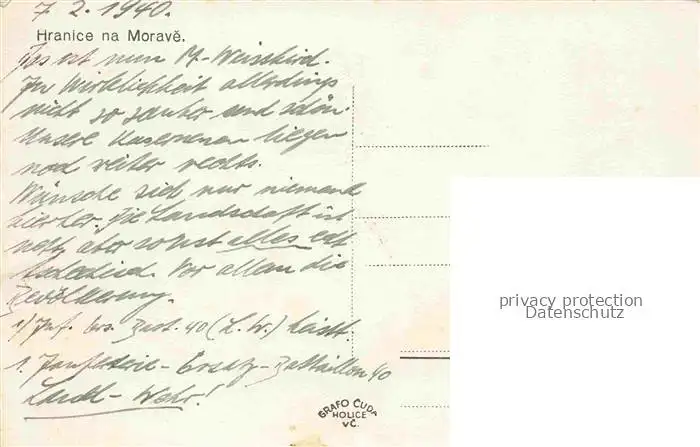 7.2.1940.
Hranice na Moravě.
Das ist nun M-Weisskird.
In Wirklichkeit allerdings
nicht so sauber und schön.
Unsere Kasernen liegen
noch weiter rechts.
Wünsche sich nur niemand
hierher. Die Landschaft ist
nett, aber sonst alles echt
tschechisch. Vor allem die
Bevölkerung.
1) Inf. Ers. Batl. 40 (L.W.) heisst:
1. Infanterie-Ersatz-Battaillon 40
Land-Wehr!
GRAFO ČUDA
HOLICE
v Č.
privacy protection
Datenschutz